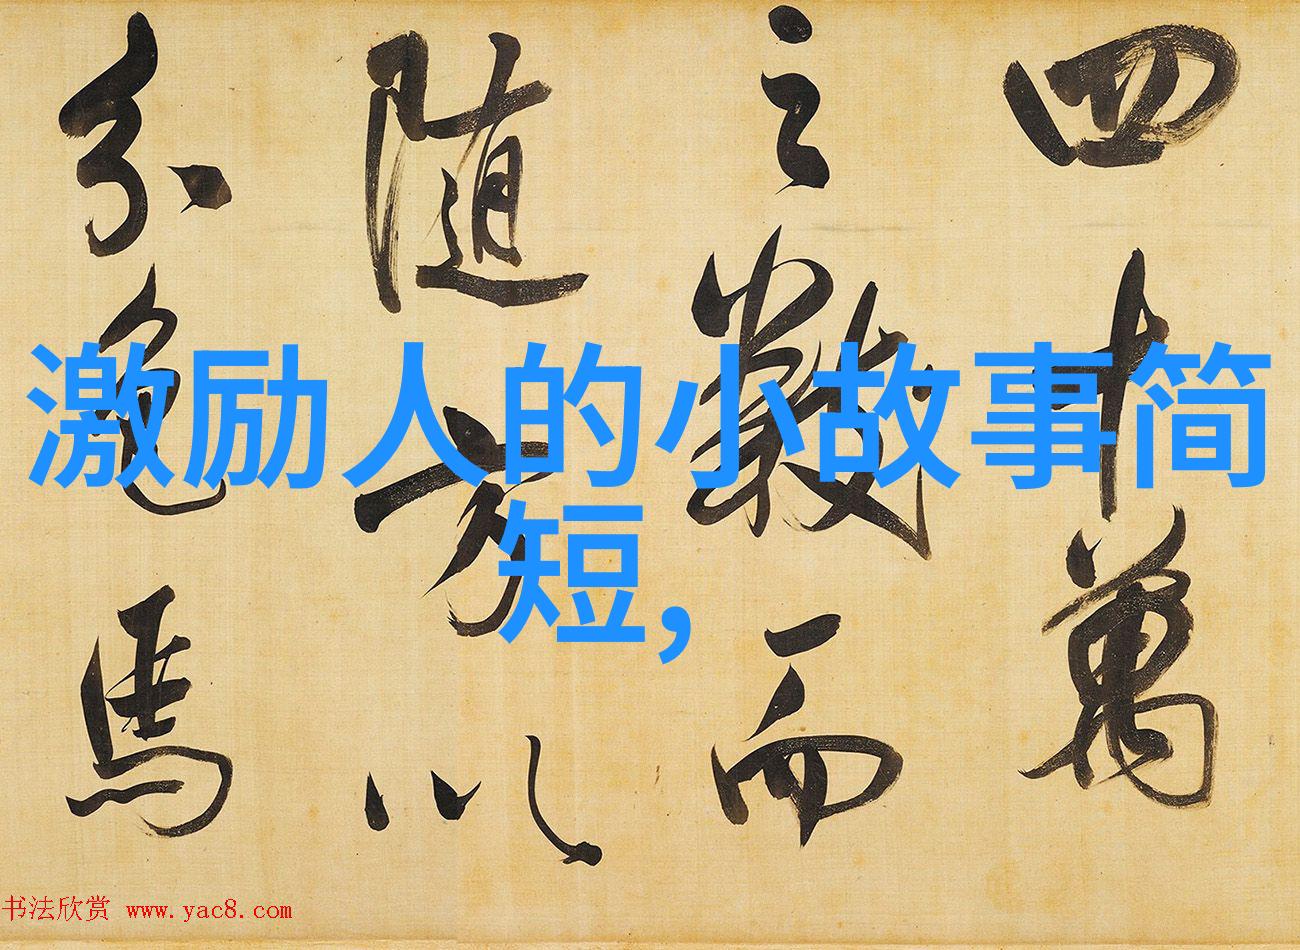 四十萬
之數而
随方以
分色馬
激励人的小故事简
短,
书法欣赏 www.yac8.com